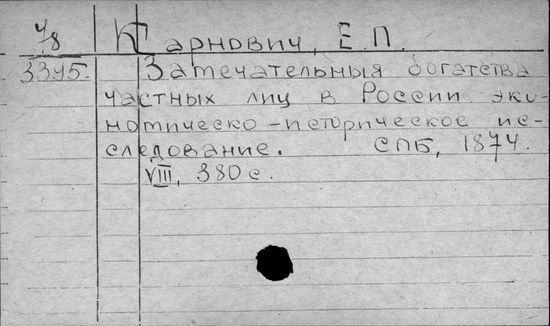 4/8 Карнович, Е.П.
3345. Замечательныя богатства
частных лиц в России эко-
номическо-историческое ис-
следование. СПБ, 1874.
VIII, 380 с.